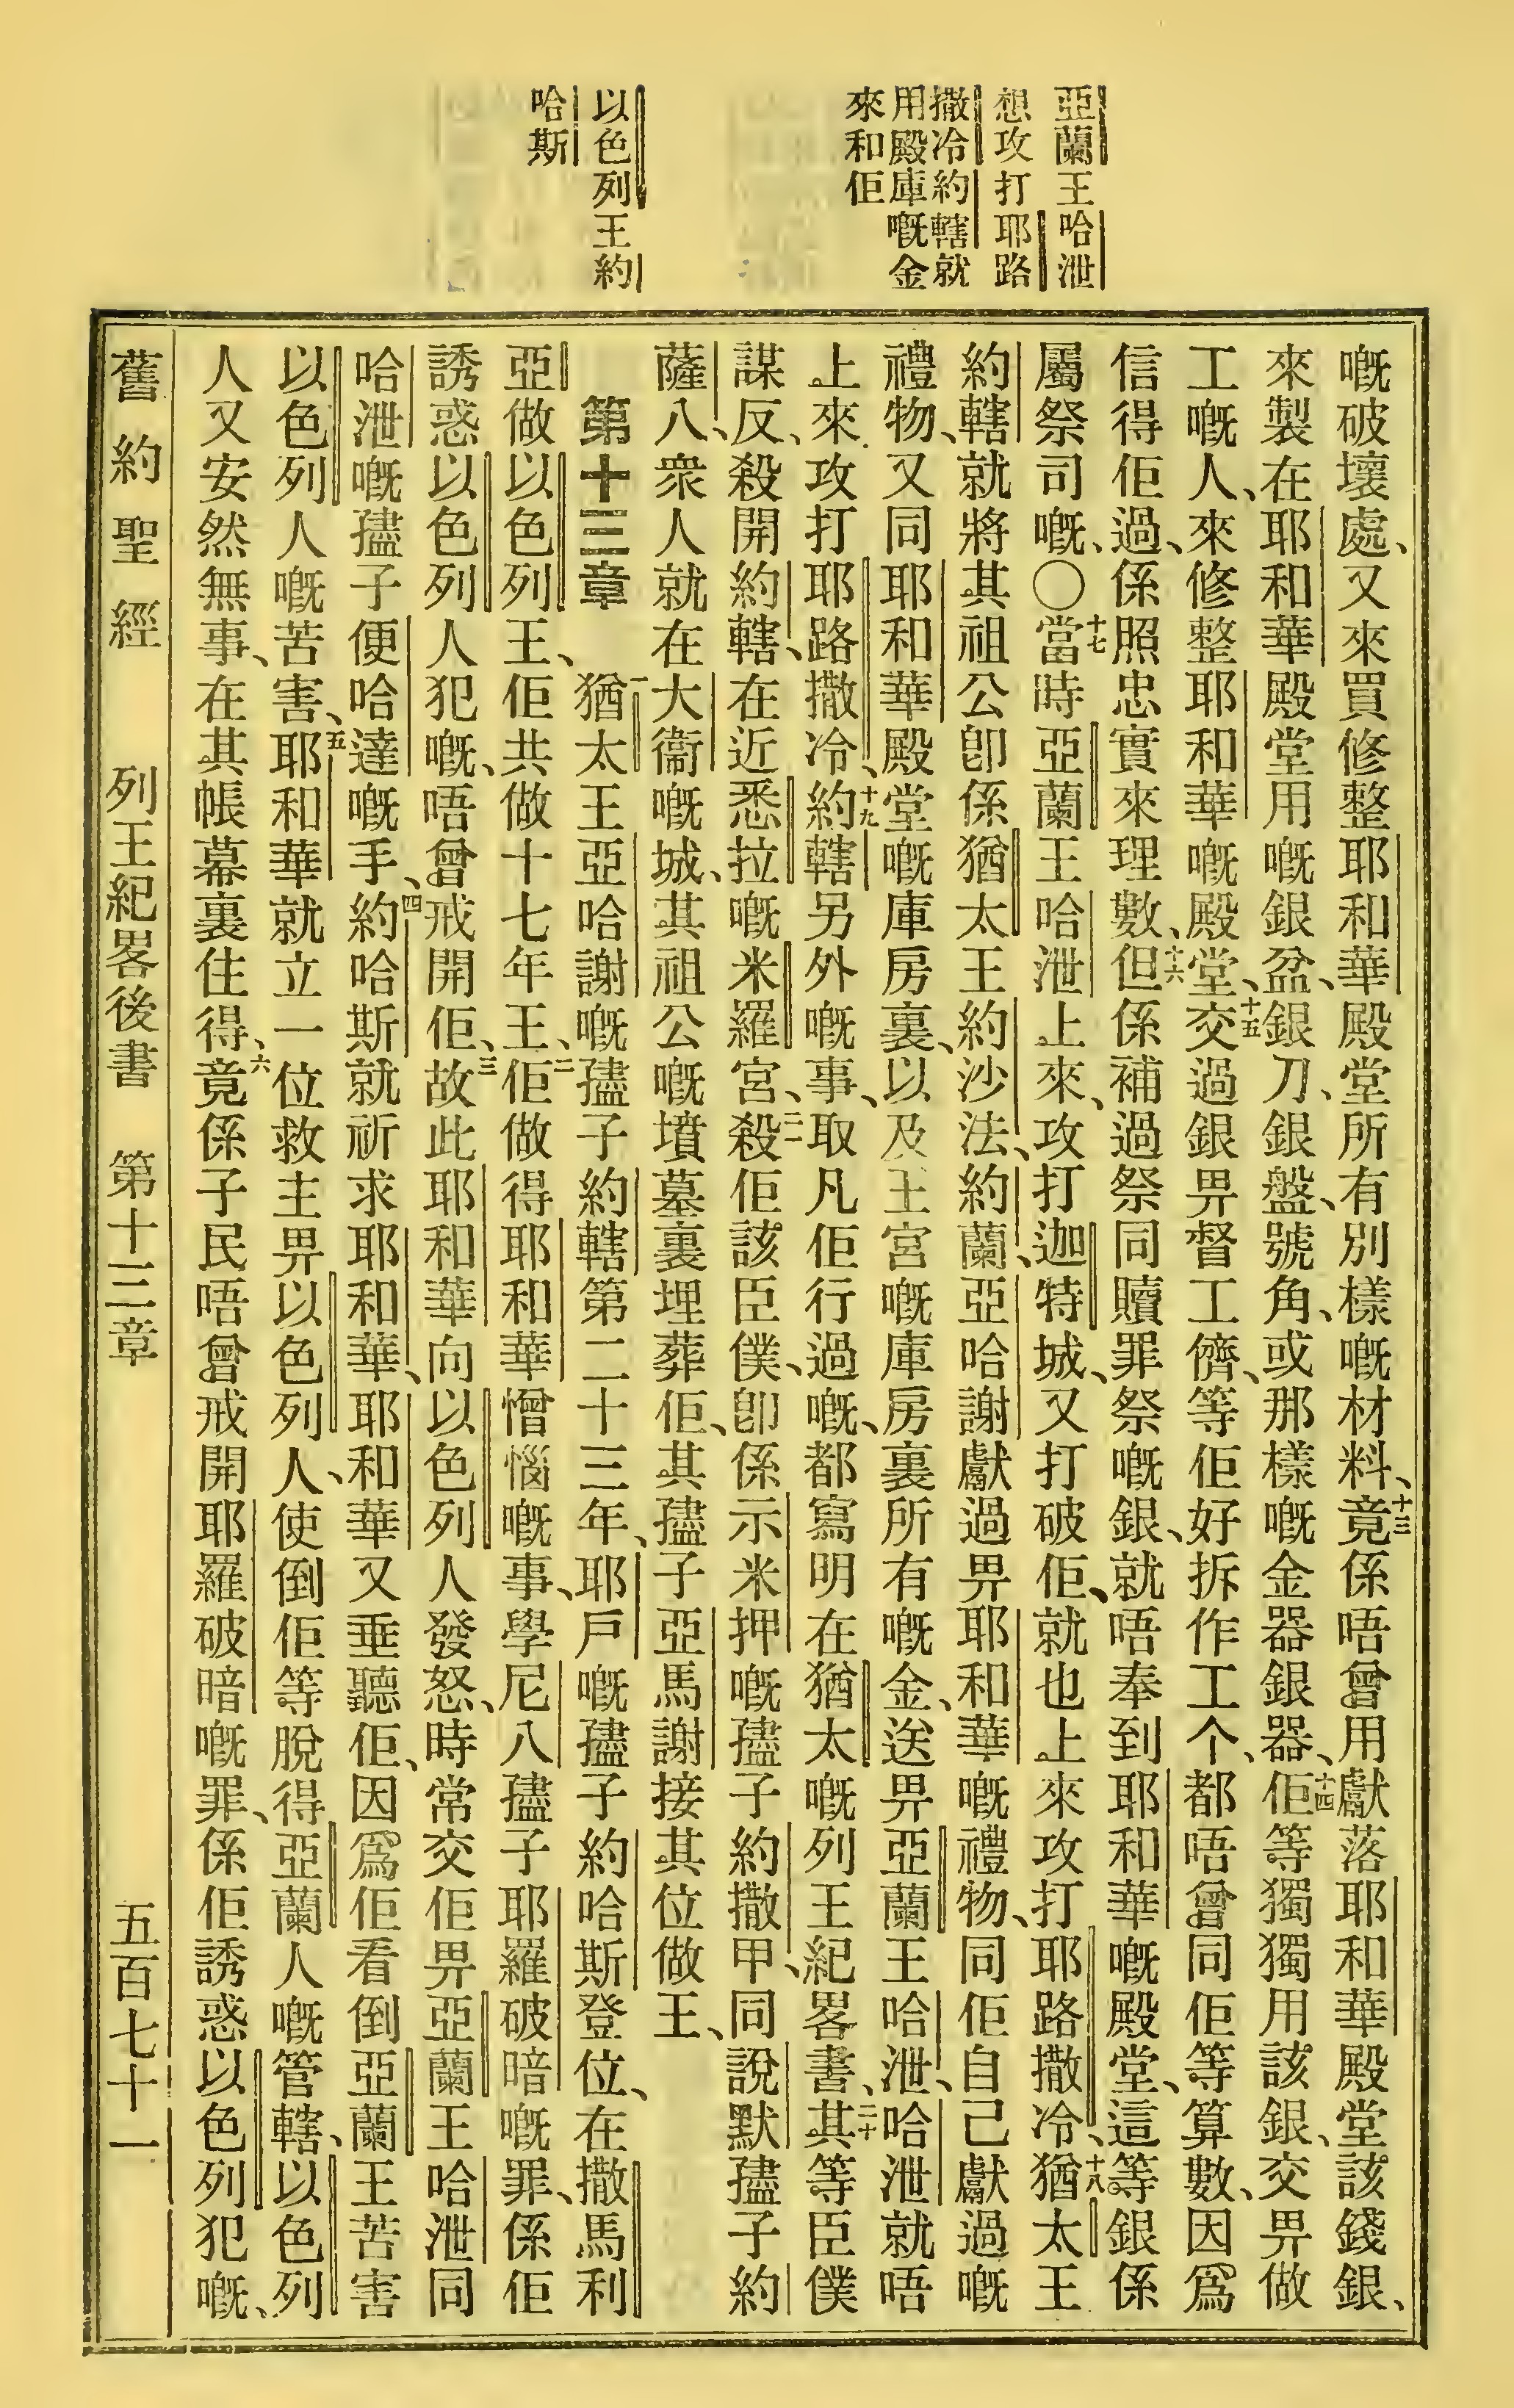 亞蘭王哈泄
想攻打耶路
撒冷約轄就
用殿庫嘅金
來和佢
以色列王約
哈斯
嘅破壞處、又來買修整耶和華殿堂所有別樣嘅材料、十三竟係唔曾用獻落耶和華殿堂該錢銀、
來製在耶和華殿堂用嘅銀盆、銀刀、銀盤、號角、或那樣嘅金器銀器、十四佢等獨獨用該銀、交畀做
工嘅人、來修整耶和華嘅殿堂、十五交過銀畀督工儕、等佢好拆作工个、都唔曾同佢等算數、因爲
信得佢過、係照忠實來理數、十六但係補過祭同贖罪祭嘅銀、就唔奉到耶和華嘅殿堂、這等銀係
屬祭司嘅、〇十七當時亞蘭王哈泄上來、攻打迦特城、又打破佢、就也上來攻打耶路撒冷、十八猶太王
約轄就將其祖公卽係猶太王約沙法、約蘭、亞哈謝獻過畀耶和華嘅禮物、同佢自己獻過嘅
禮物、又同耶和華殿堂嘅庫房裏、以及王宮嘅庫房裏所有嘅金、送畀亞蘭王哈泄、哈泄就唔
上來攻打耶路撒冷、十九約轄另外嘅事、取凡佢行過嘅、都寫明在猶太嘅列王紀畧書、二十其等臣僕
謀反、殺開約轄、在近悉拉嘅米羅宮、二一殺佢該臣僕、卽係示米押嘅孻子約撒甲、同說默孻子約
薩八、衆人就在大衞嘅城、其祖公嘅墳墓裏埋葬佢、其孻子亞馬謝接其位做王、
第十三章 一猶太王亞哈謝嘅孻子約轄第二十三年、耶戶嘅孻子約哈斯登位、在撒馬利
亞做以色列王、佢共做十七年王、二佢做得耶和華憎惱嘅事、學尼八孻子耶羅破暗嘅罪、係佢
誘惑以色列人犯嘅、唔曾戒開佢、三故此耶和華向以色列人發怒、時常交佢畀亞蘭王哈泄同
哈泄嘅孻子便哈達嘅手、四約哈斯就祈求耶和華、耶和華又垂聽佢、因爲佢看倒亞蘭王苦害
以色列人嘅苦害、五耶和華就立一位救主畀以色列人、使倒佢等脫得亞蘭人嘅管轄、以色列
人又安然無事、在其帳幕裏住得、六竟係子民唔曾戒開耶羅破暗嘅罪、係佢誘惑以色列犯嘅、
舊約聖經 列王紀畧後書 第十三章 五百七十一